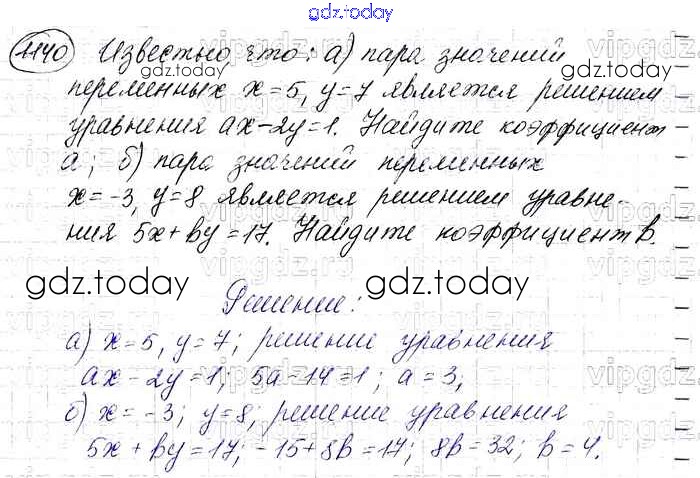 gdz.today
1140 Известно, что: а) пара значений
переменных x=5, y=7 является решением
уравнения ax-2y=1. Найдите коэффициент
а; б) пара значений переменных
x=-3, y=8 является решением уравне-
ния 5x+by=17. Найдите коэффициент b.
gdz.today gdz.today gdz.today
Решение:
а) x=5, y=7; решение уравнения
ax-2y=1; 5a-14=1; a=3;
б) x=-3; y=8, решение уравнения
5x+by=17; -15+8b=17; 8b=32; b=4.